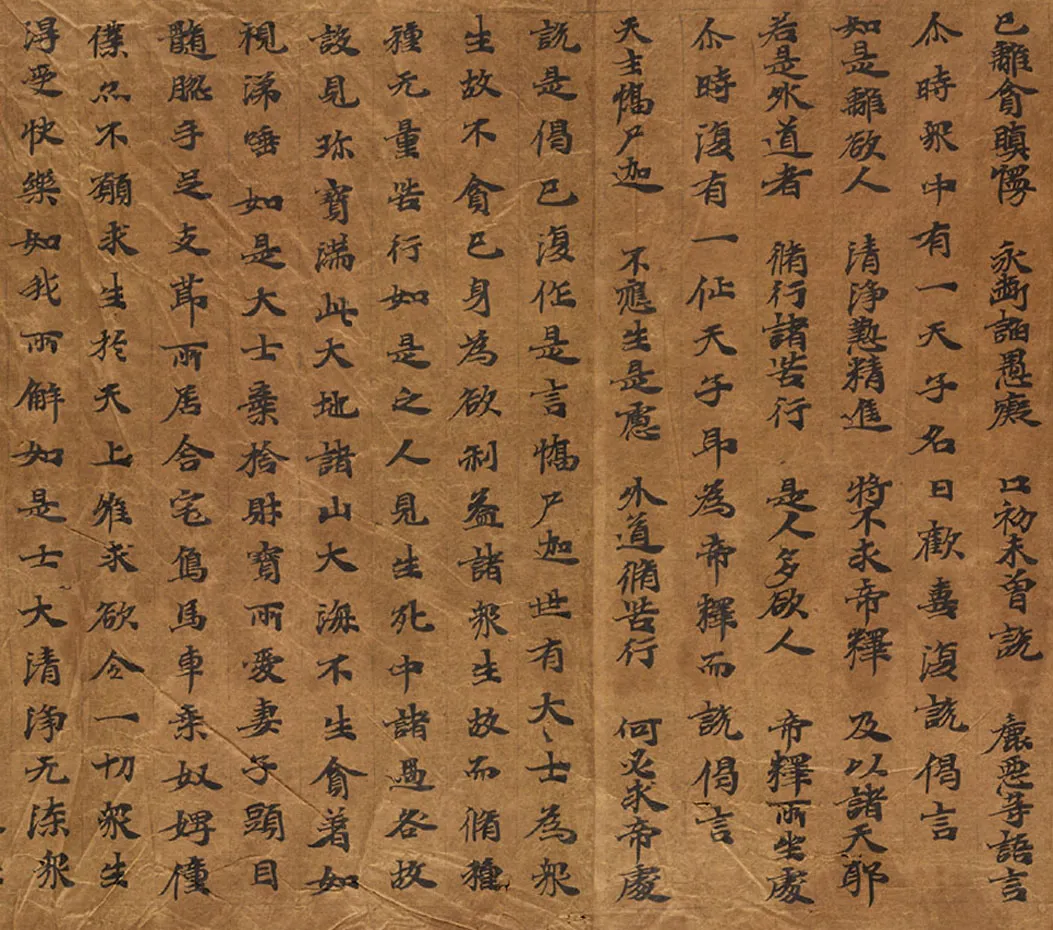 已離貪瞋慢 永斷諂愚癡 口初未曾說 麁惡等語言
尒時衆中有一天子名曰歡喜復說偈言
如是離欲人 清淨懃精進 將不求帝釋 及以諸天耶
若是外道者 脩行諸苦行 是人多欲人 帝釋所坐處
尒時復有一仙天子即為帝釋而說偈言
天主憍尸迦 不應生是慮 外道脩苦行 何必求帝處
說是偈已復作是言憍尸迦世有大〻士為衆
生故不貪已身為欲利益諸衆生故而脩種
種无量苦行如是之人見生死中諸過各故
設見珎寶滿此大地諸山大海不生貪著如
視涕唾如是大士棄捨財寶所愛妻子頭目
髓腦手足支節所居舍宅鳥馬車乘奴婢僮
僕亦不願求生於天上唯求欲令一切衆生
得受快樂如我所解如是士大清淨无㳍衆